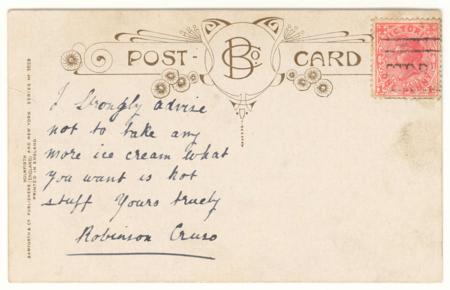 POST CARD
B Co.
VICTORIA
I Strongly advise
not to take any
more ice cream What
you want is hot
stuff Yours truely
Robinson Cruso
BAMFORTH & CO. PUBLISHERS
HOLMFIRTH (ENGLAND) AND NEW YORK
PRINTED IN ENGLAND
SERIES Nº